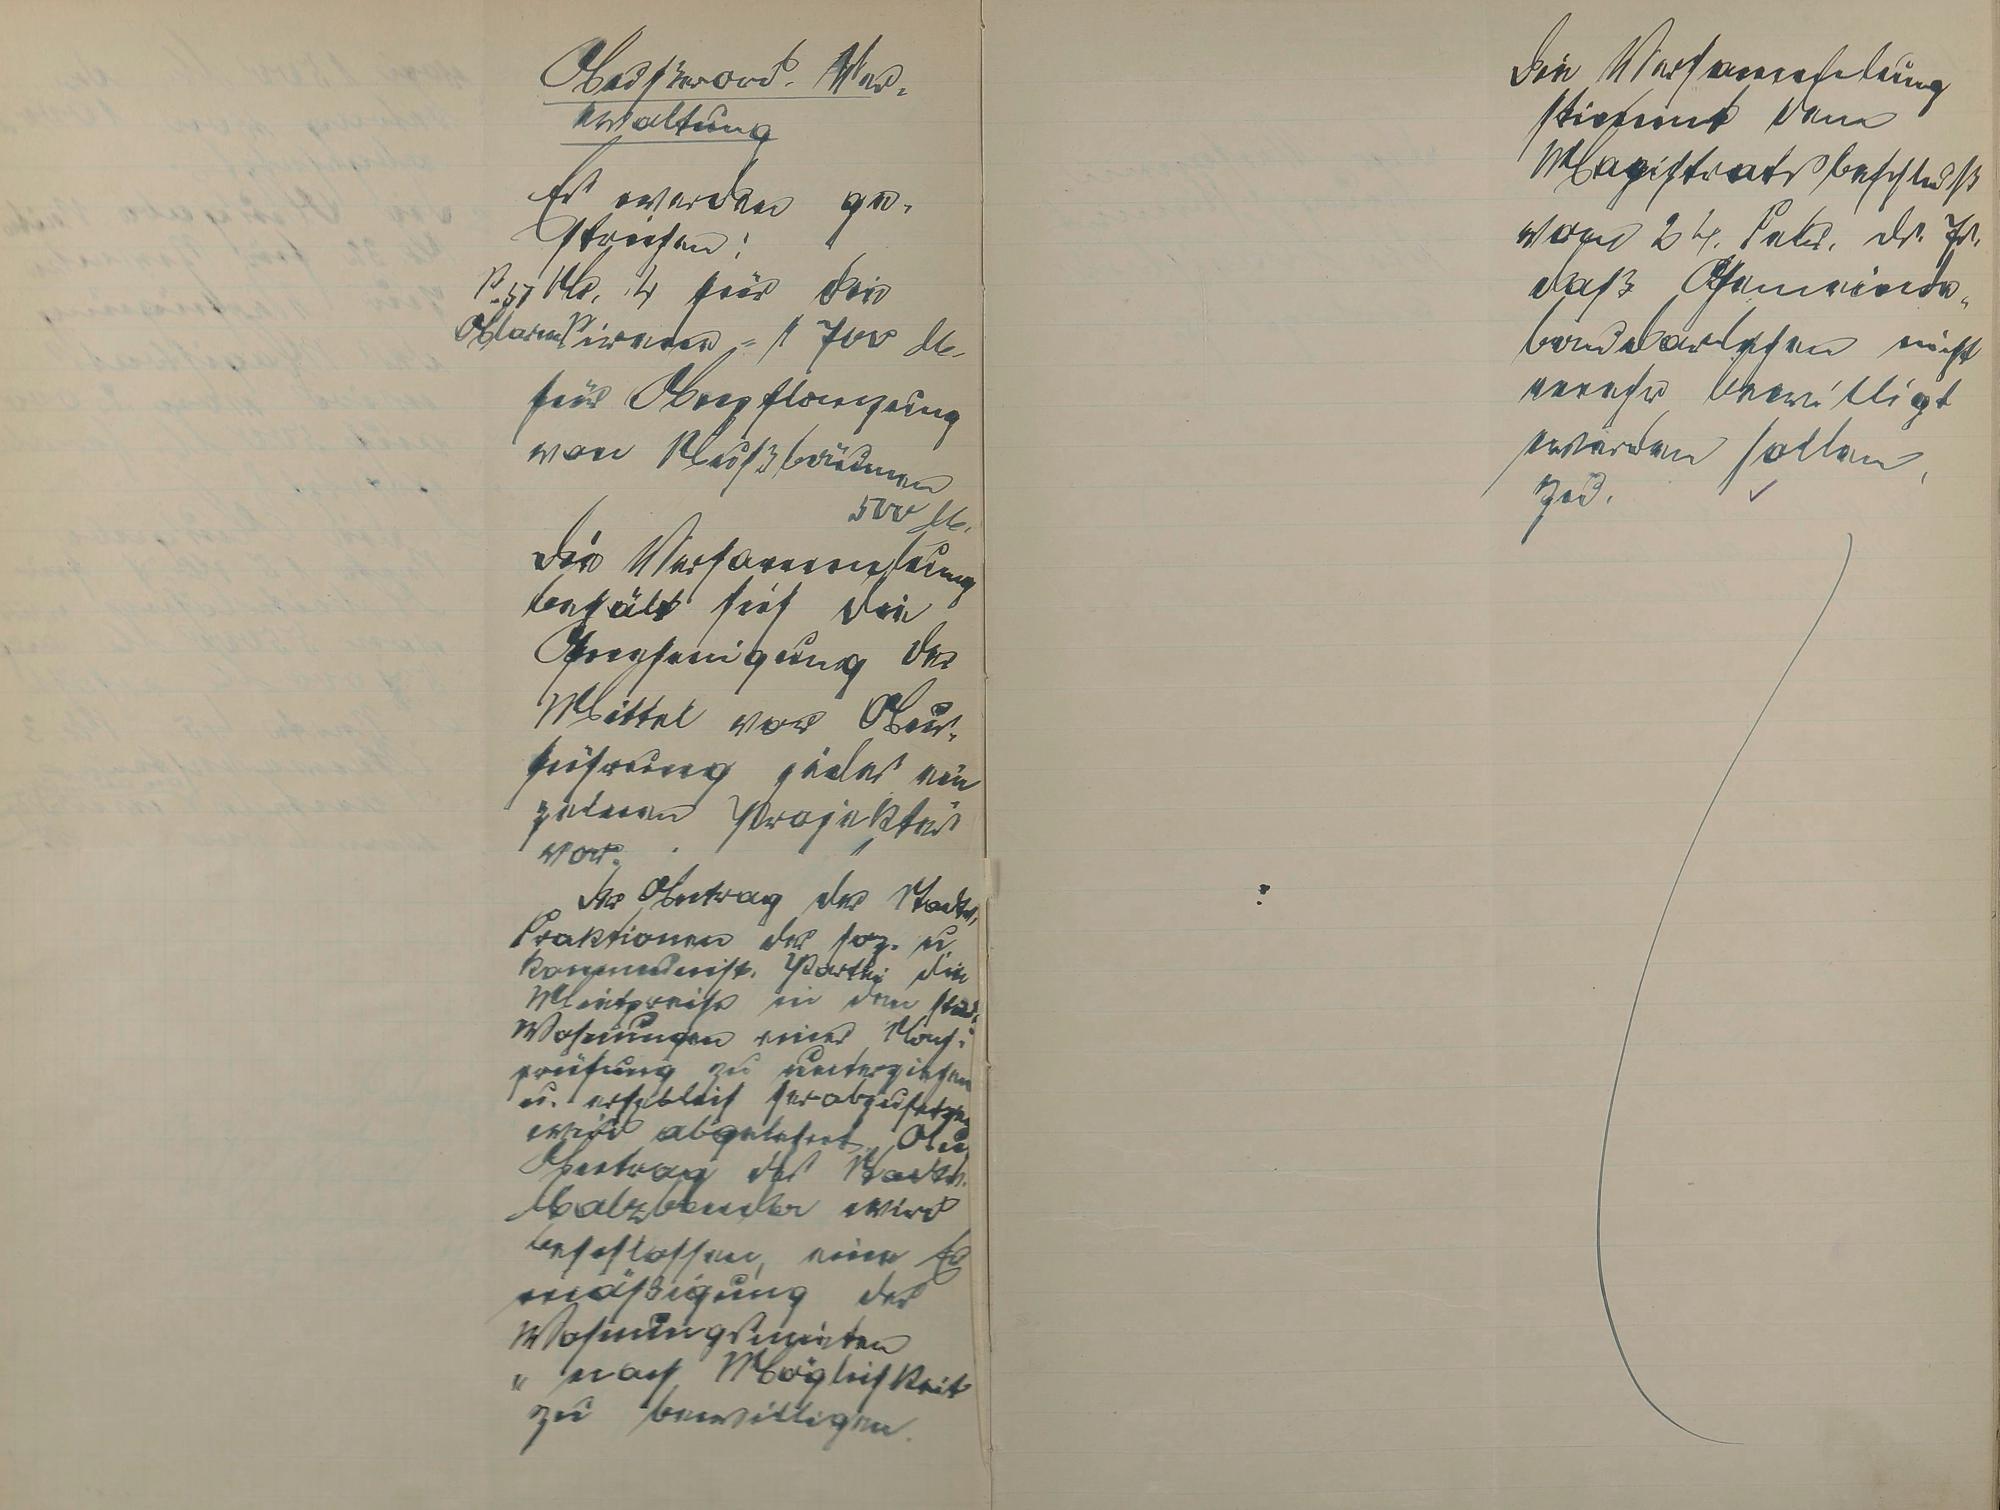 Außerord. Ver-
waltung
Es werden ge-
strichen:
P. 57 No. 4 für die
Alarmsirenen = 1700 M.
für Anpflanzung
von Nußbäumen
500 M.
Die Versammlung
behält sich die
Genehmigung der
Mittel vor Aus-
führung jedes ein
zelnen Projektes
vor.
Der Antrag der Stadtv.
Fraktionen der soz. u.
kommunist. Partei die
Mietpreise in den städt.
Wohnungen einer Nach-
prüfung zu unterziehen
u. erheblich herabzusetzen
wird abgelehnt. Auf
Antrag des Stadtv.
Salzbender wird
beschlossen, eine Er
mäßigung der
Wohnungsmieten
" nach Möglichkeit
zu bewilligen.
Die Versammlung
stimmt dem
Magistratsbeschluß
vom 24. Febr. ds. Js.
daß Gemeinde-
baudarlehen nicht
mehr bewilligt
werden sollen,
zu.